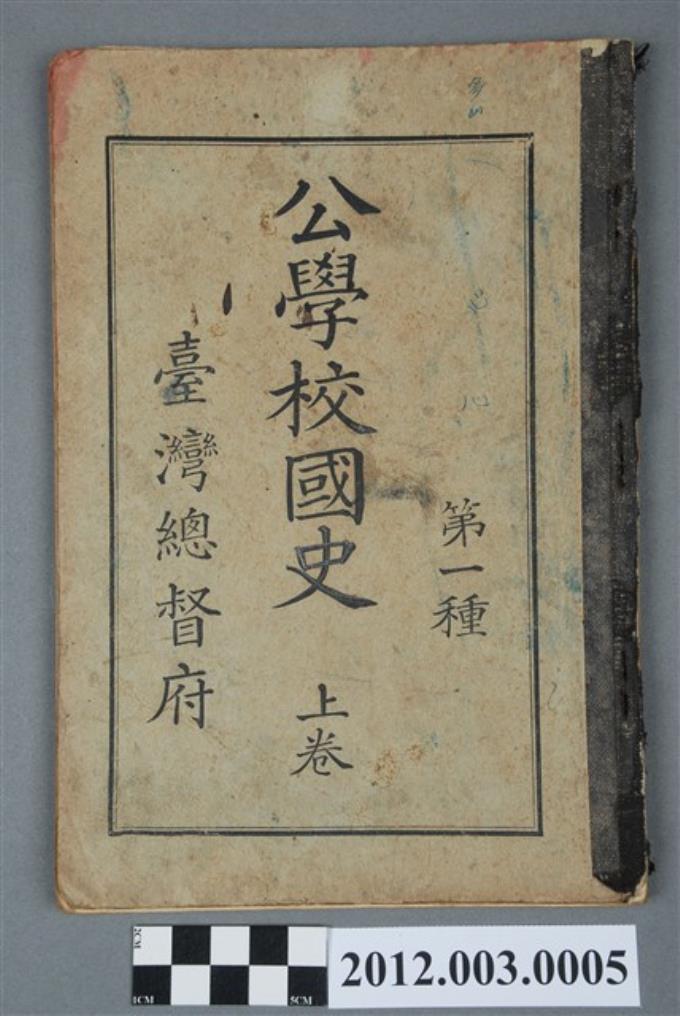 第一種
公學校國史 上卷
臺灣總督府
2CM
1CM
5CM
2012.003.0005